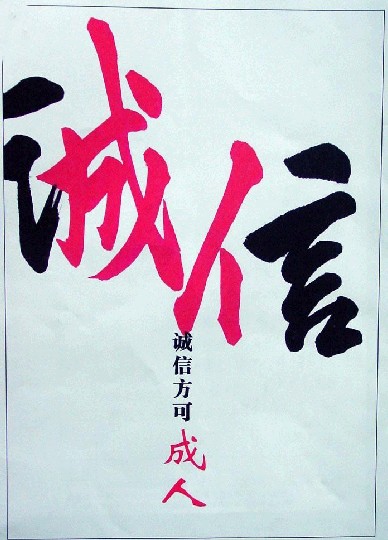 诚信
诚信方可成人